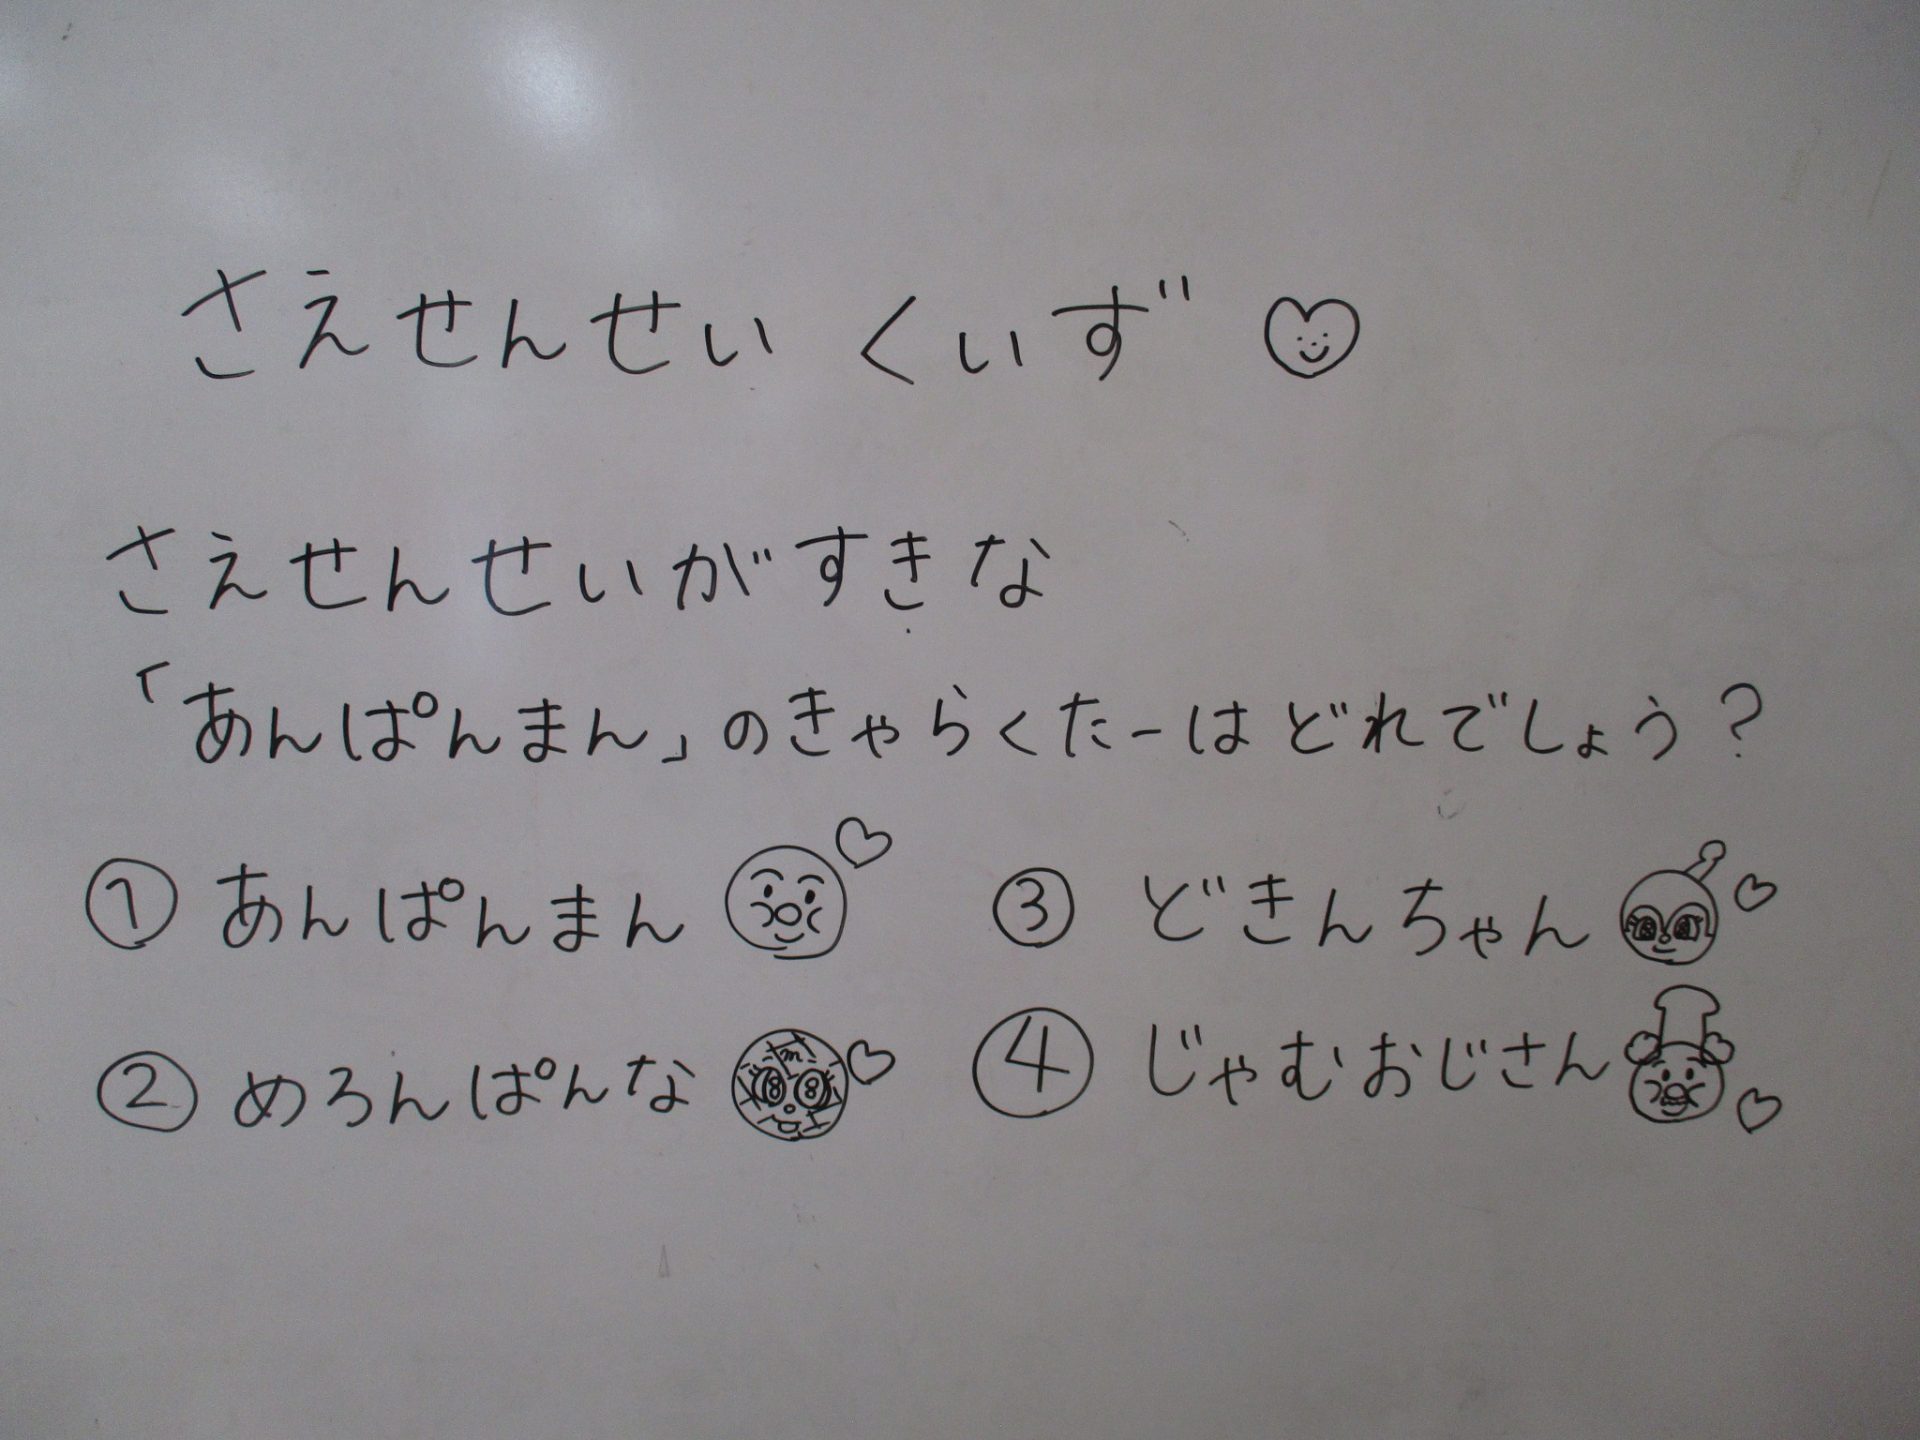 さえせんせい くいず
さえせんせいがすきな
「あんぱんまん」のきゃらくたーはどれでしょう?
① あんぱんまん
② めろんぱんな
③ どきんちゃん
④ じゃむおじさん